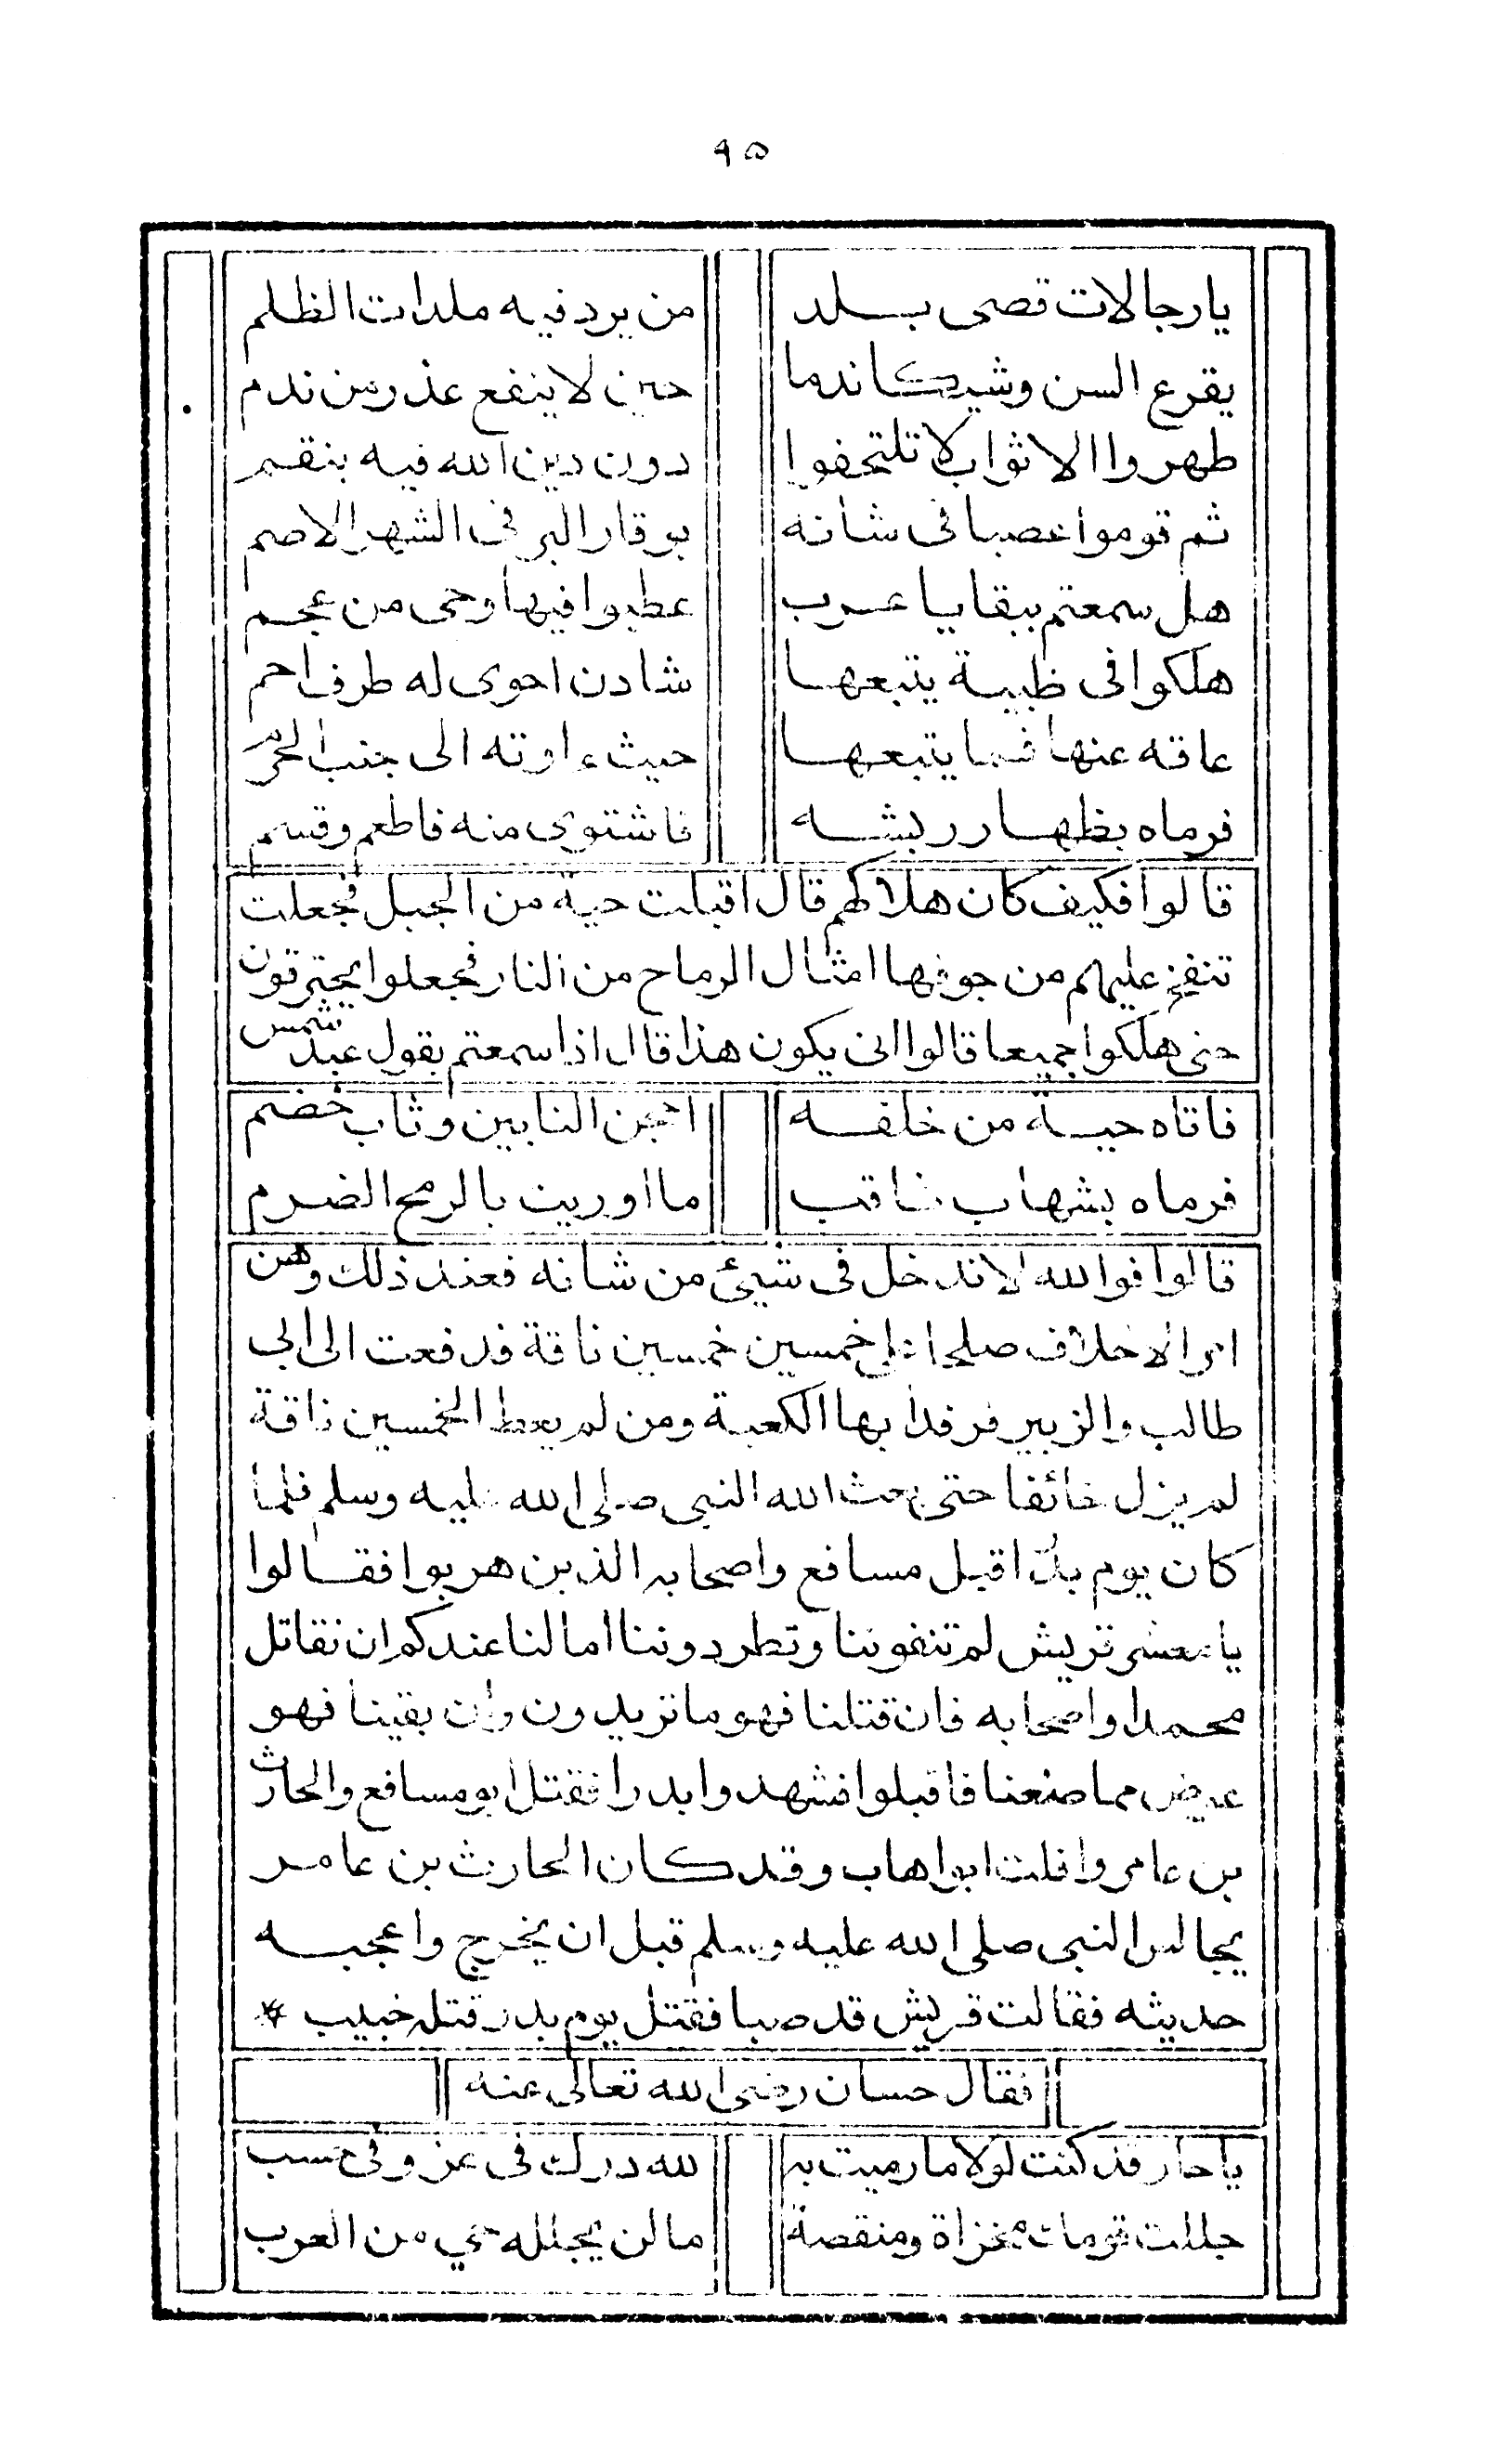 ٩٥
يا رجالات قصى بلد من يرد فيه ملدات الظلم
يقرع السن وشيكا ندما حين لا ينفع عذر من ندم
طهروا الاثواب لا تلتحفوا دون دين الله فيه بنقم
ثم قوموا عصبا فى شانه بوقار البر فى الشهر الاصم
هل سمعتم ببقايا عرب عطبوا فيها وحى من عجم
هلكوا فى ظبية يتبعها شادن احوى له طرف احم
عاقه عنها فما يتبعها حيث ءاوته الى جنب الحرم
فرماه بظهار ريشه فاشتوى منه فاطعم وقسم
قالوا فكيف كان هلاكهم قال اقبلت حية من الجبل فجعلت
تنفخ عليهم من جوفها امثال الرماح من النار فجعلوا يحترقون
حتى هلكوا جميعا قالوا انى يكون هذا قال اذا سمعتم بقول عبد شمس
فاتاه حية من خلفه احجن النابين وثاب خضم
فرماه بشهاب ثاقب ما اوريت بالرمح الضرم
قالوا فوالله لا ندخل فى شيئ من شانه فعند ذلك وهن
امر الاحلاف صلحا على خمسين خمسين ناقة فدفعت الى ابى
طالب والزبير فرفدا بها الكعبة ومن لم يعط الخمسين ناقة
لم يزل خائفا حتى بعث الله النبى صلى الله عليه وسلم فلما
كان يوم بدر اقبل مسافع واصحابه الذين هربوا فقالوا
يا معشر قريش لم تنفوننا وتطردوننا امالنا عندكم ان نقاتل
محمدا واصحابه فان قتلنا فهو ما تريدون وان بقينا فهو
عوض مما صنعنا فاقبلوا فشهدوا بدرا فقتل ابو مسافع والحارث
بن عامر وافلت ابو اهاب وقد كان الحارث بن عامر
يجالس النبى صلى الله عليه وسلم قبل ان يخرج واعجبه
حديثه فقالت قريش قد صبا فقتل يوم بدر قتله خبيب *
فقال حسان رضى الله تعالى عنه
يا حار قد كنت لولا ما رميت به لله درك فى عز وفى حسب
جللت قومك مخزاة ومنقصة ما لن يجلله حي من العرب